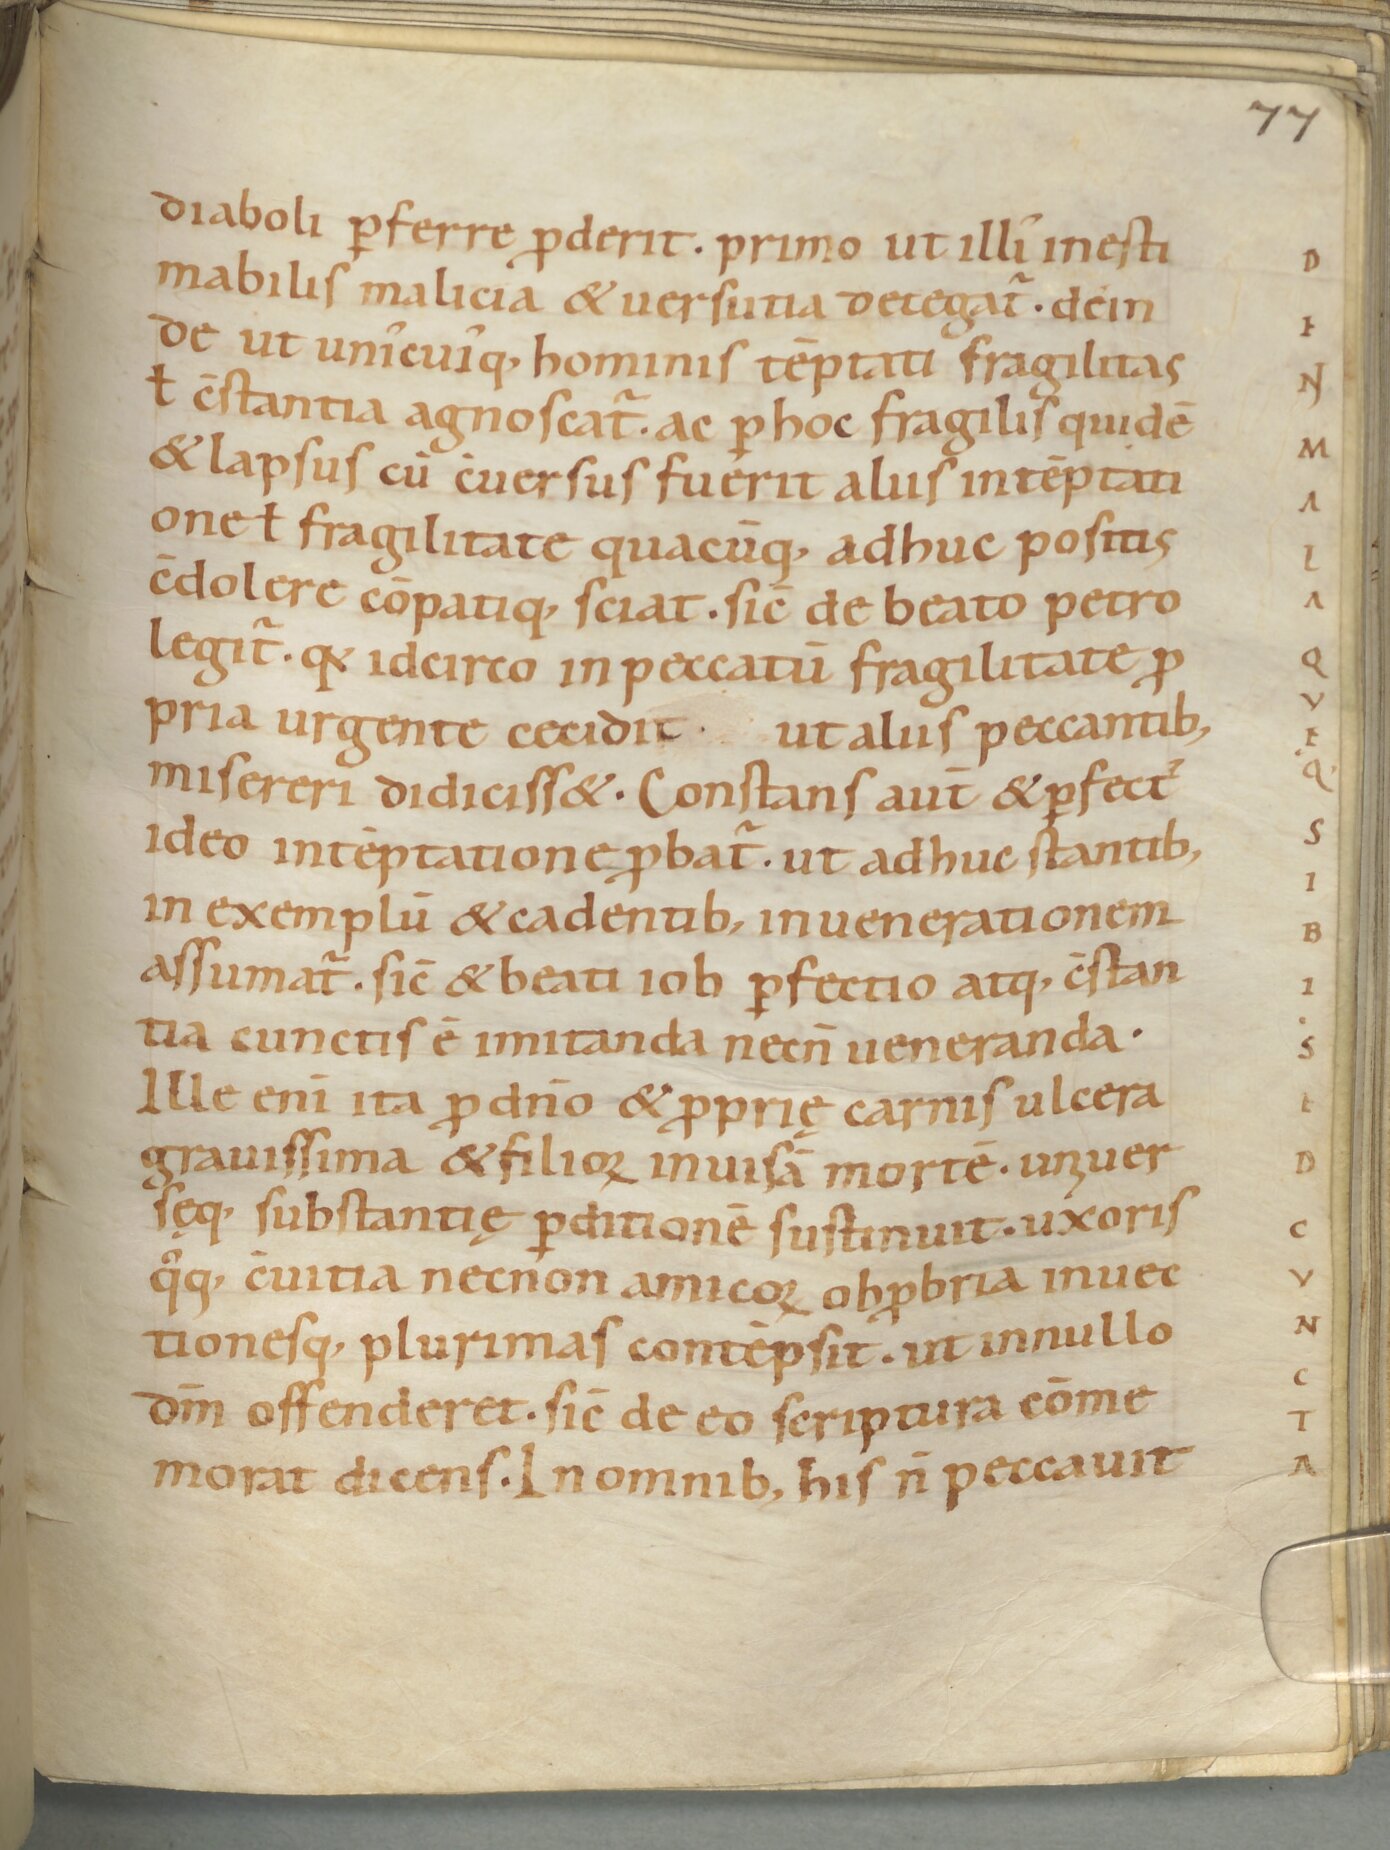 77
diaboli ꝑferre ꝓderit. primo ut illi᾽ inesti
mabilis malicia & uersutia detegat᷑. dein
de ut uni᾽cui᾽q; hominis tēptati fragilitas
ł c̄stantia agnoscat᷑. ac ꝑ hoc fragilis quidē
& lapsus cū c̄uersus fuerit aliis in tēptati
one ł fragilitate quacūq; adhuc positis
c̄dolere cōpatiq; sciat. sic̄ de beato petro
legit᷑. qꝫ idcirco in peccatū fragilitate ꝓ
pria urgente cecidit. ut aliis peccantib;
misereri didiciss&. Constans aut̄ & ꝑfect᾽
ideo in tēptatione ꝓbat᷑. ut adhuc stantib;
in exemplū & cadentib; in uenerationem
assumat᷑. sic̄ & beati iob ꝑfectio atq; c̄stan
tia cunctis ē imitanda necn̄ ueneranda.
Ille eni̅ ita ꝓ dn̄o & ꝓprię carnis ulcera
grauissima & filioꝝ inuisā mortē. unꝫuer
sęq; substantię ꝑditionē sustinuit. uxoris
qͦq; c̄uitia necnon amicoꝝ obꝓbria inuec
tionesq; plurimas contēpsit. ut in nullo
dm̄ offenderet. sic̄ de eo scriptura cōme
morat dicens. In omnib; his n̄ peccauit
D
E
N
M
A
L
A
Q
V
E
Q
S
I
B
I
S
E
D
C
V
N
C
T
A